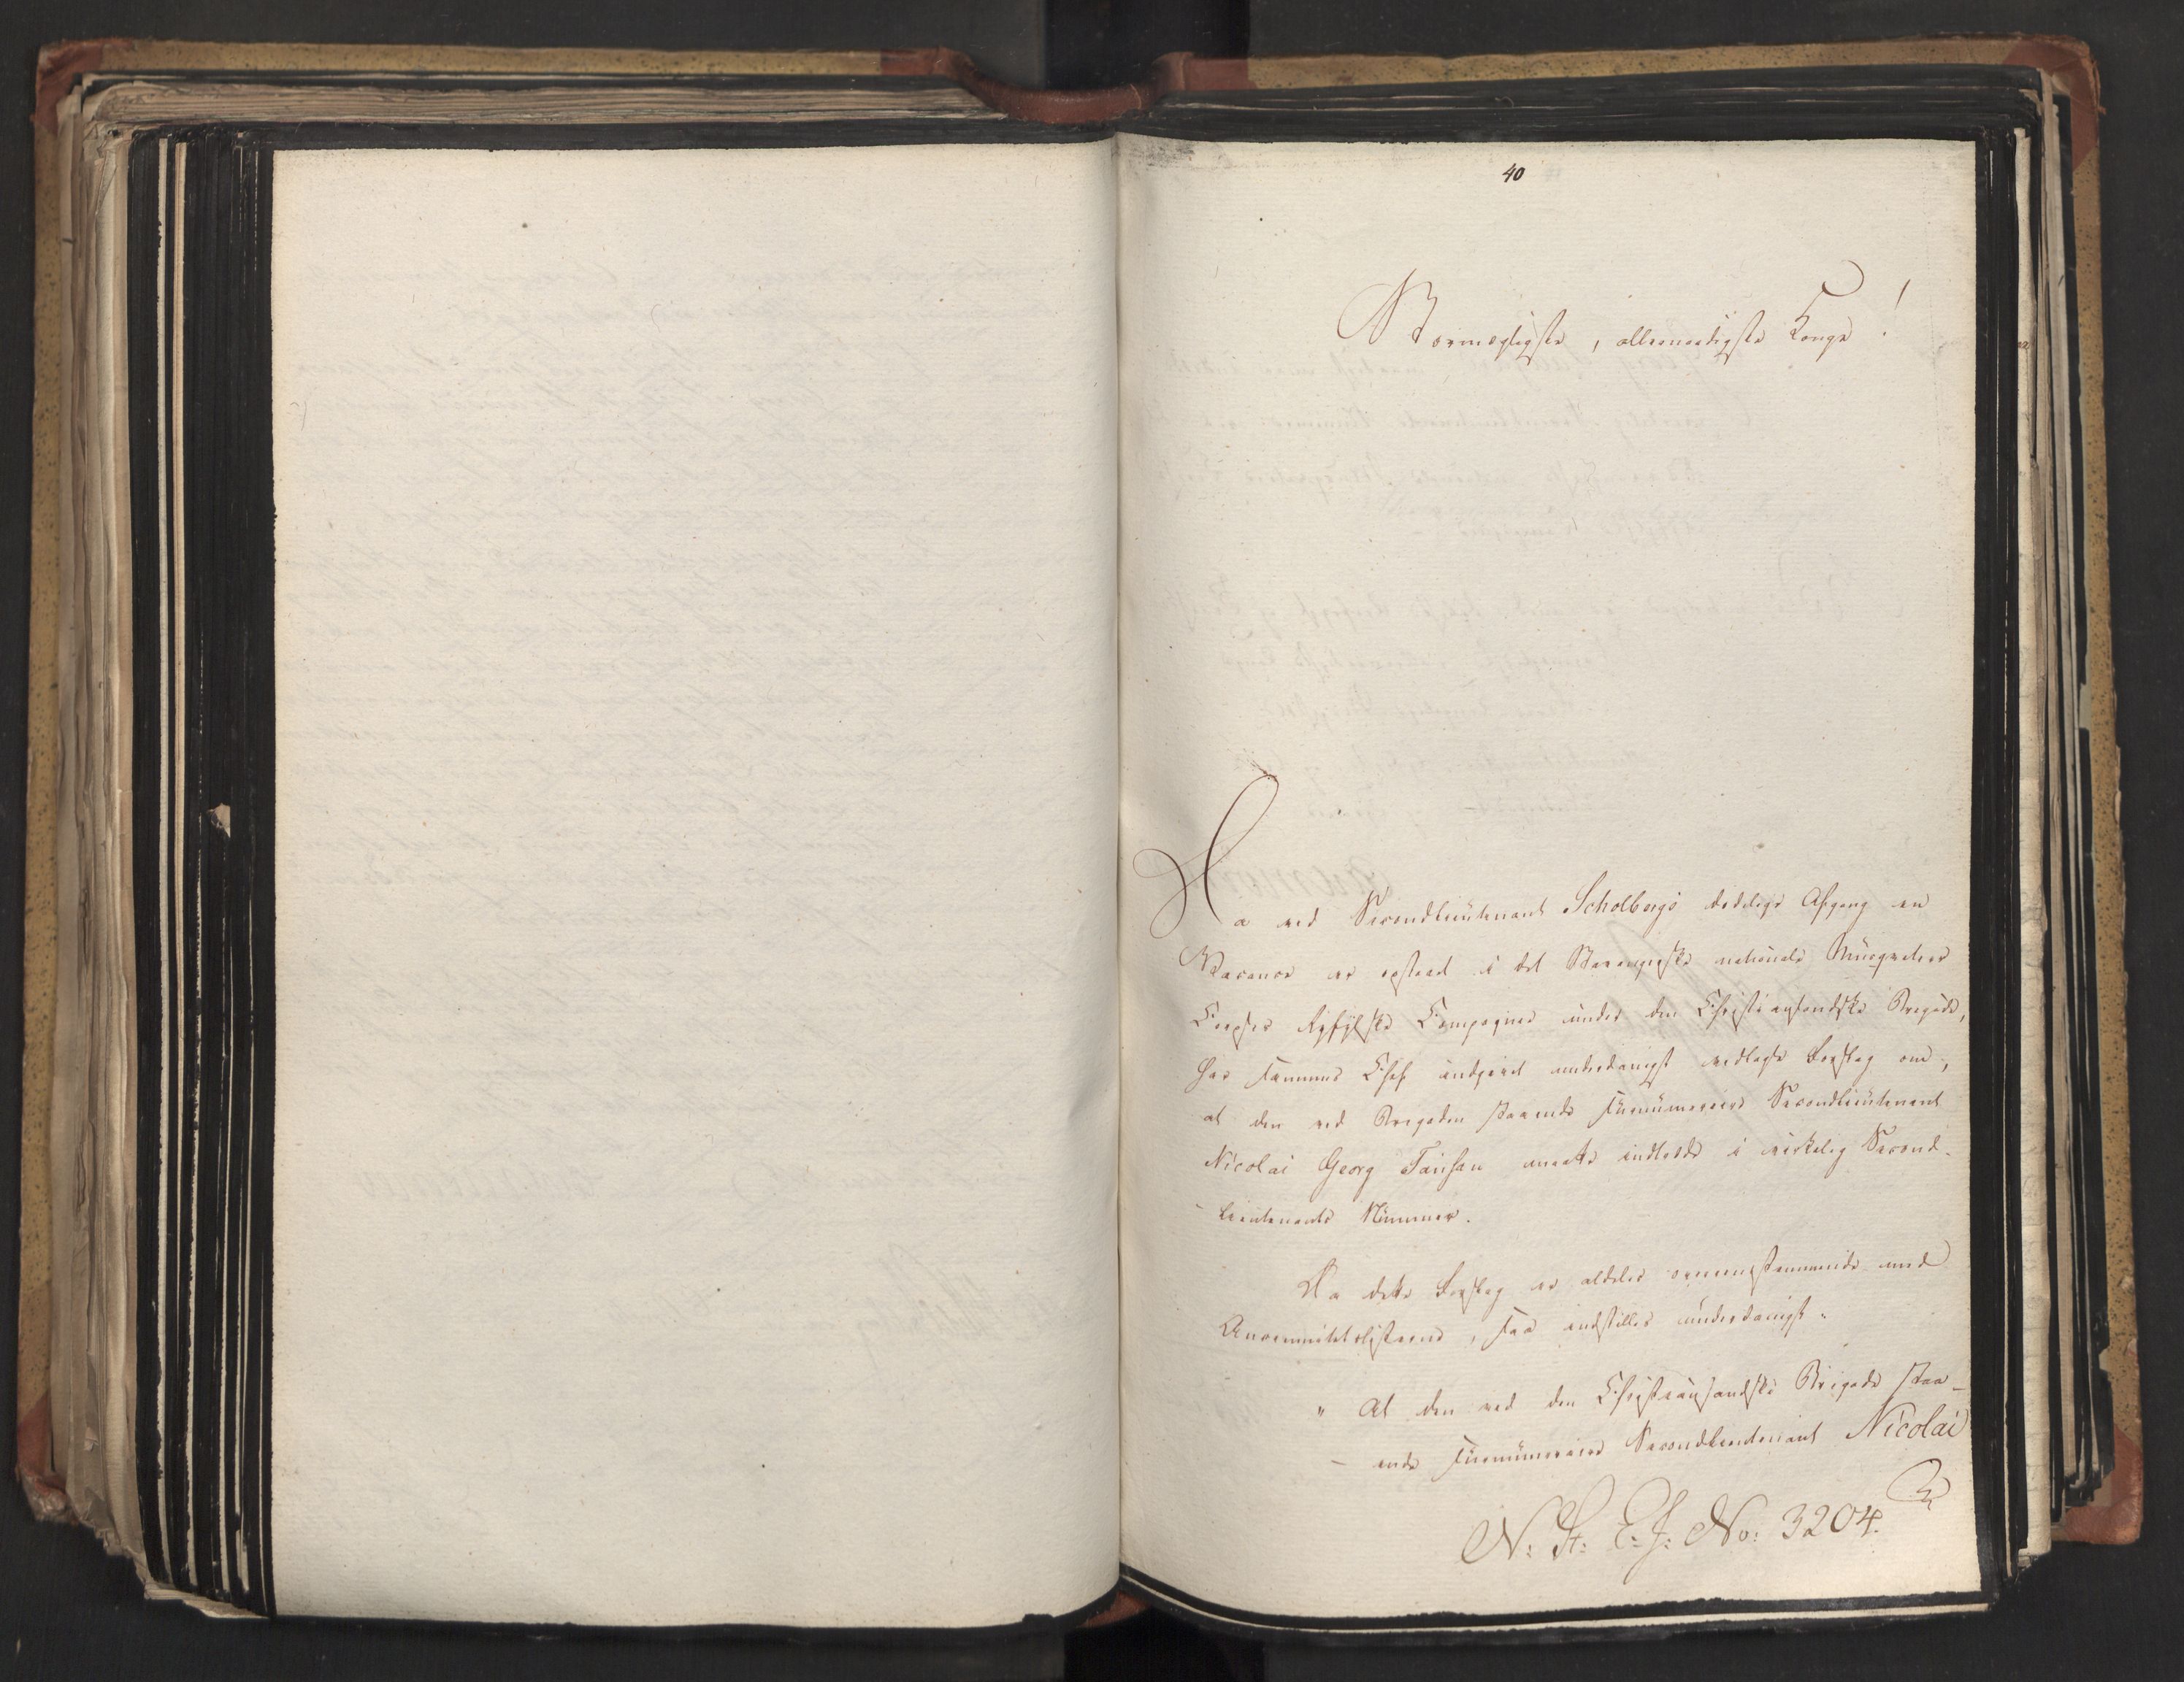 40
Stormægtigste, allernaadigste Konge!
Da ved Secondlieutenant Scholbergs dødelige Afgang en
Vacance er opstaaet i det Stavangerske nationale Musqueteer
Corpses Ryfylske Compagnie under den Christiansandske Brigade,
har sammes Chef indgivet underdanigst vedlagte Forslag om,
at den ved Brigaden staaende surnumeraire Secondlieutenant
Nicolai Georg Fausan maatte indtræde i virkelig Second-
- lieutenants Nummer.
Da dette Forslag er aldeles overeensstemmende med
Anciennitetslisterne, saa indstilles underdanigst:
" At den ved den Christiansandske Brigade staa-
- ende surnumeraire Secondlieutenant Nicolai
N: St: E: J: No: 3204.